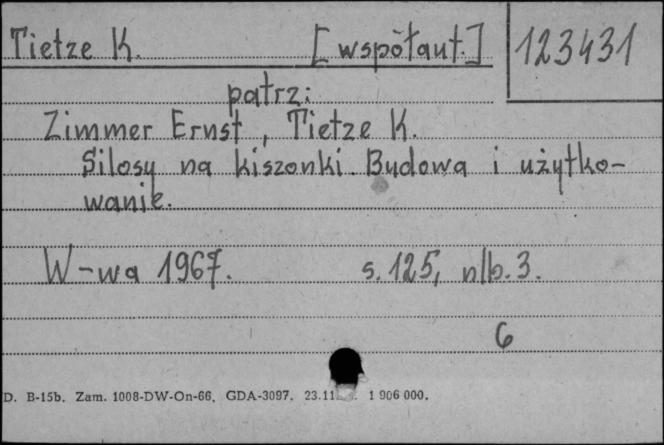 Tietze K. [współaut.] 123431
patrz:
Zimmer Ernst, Tietze K.
Silosy na kiszonki. Budowa i użytko-
wanie.
W-wa 1967. s. 125, nlb. 3.
6
D. B-15b. Zam. 1008-DW-On-66. GDA-3097. 23.11 1 906 000.